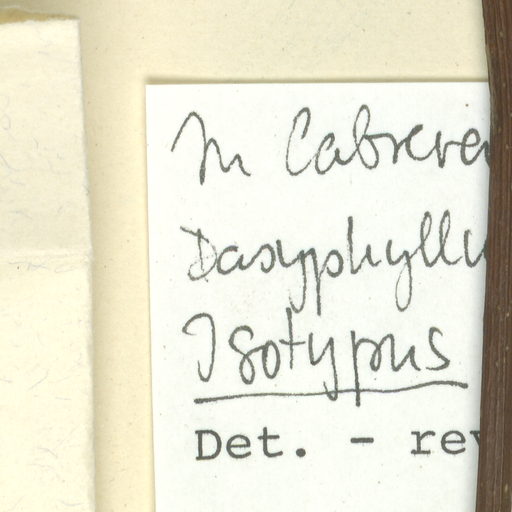 In Cabrera
Dasyphyllu
Isotypus
Det. - rev